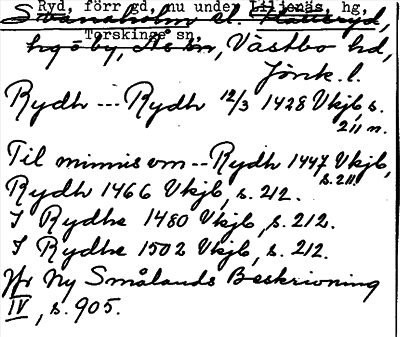 Ryd, förr gd, nu under Liljenäs, hg,
Svanaholm el. Hatteryd,
Torskinge sn,
hg o by, As sn, Västbo hd,
Jönk. l.
Rydh --- Rydh 12/3 1428 Vkjb, s.
211 n.
Til minnis om -- Rydh 1447 Vkjb,
s. 211.
Rydh 1466 Vkjb, s. 212.
I Rydhe 1480 Vkjb, s. 212.
I Rydhe 1502 Vkjb, s. 212.
Jfr Ny Smålands Beskrivning
IV, s. 905.